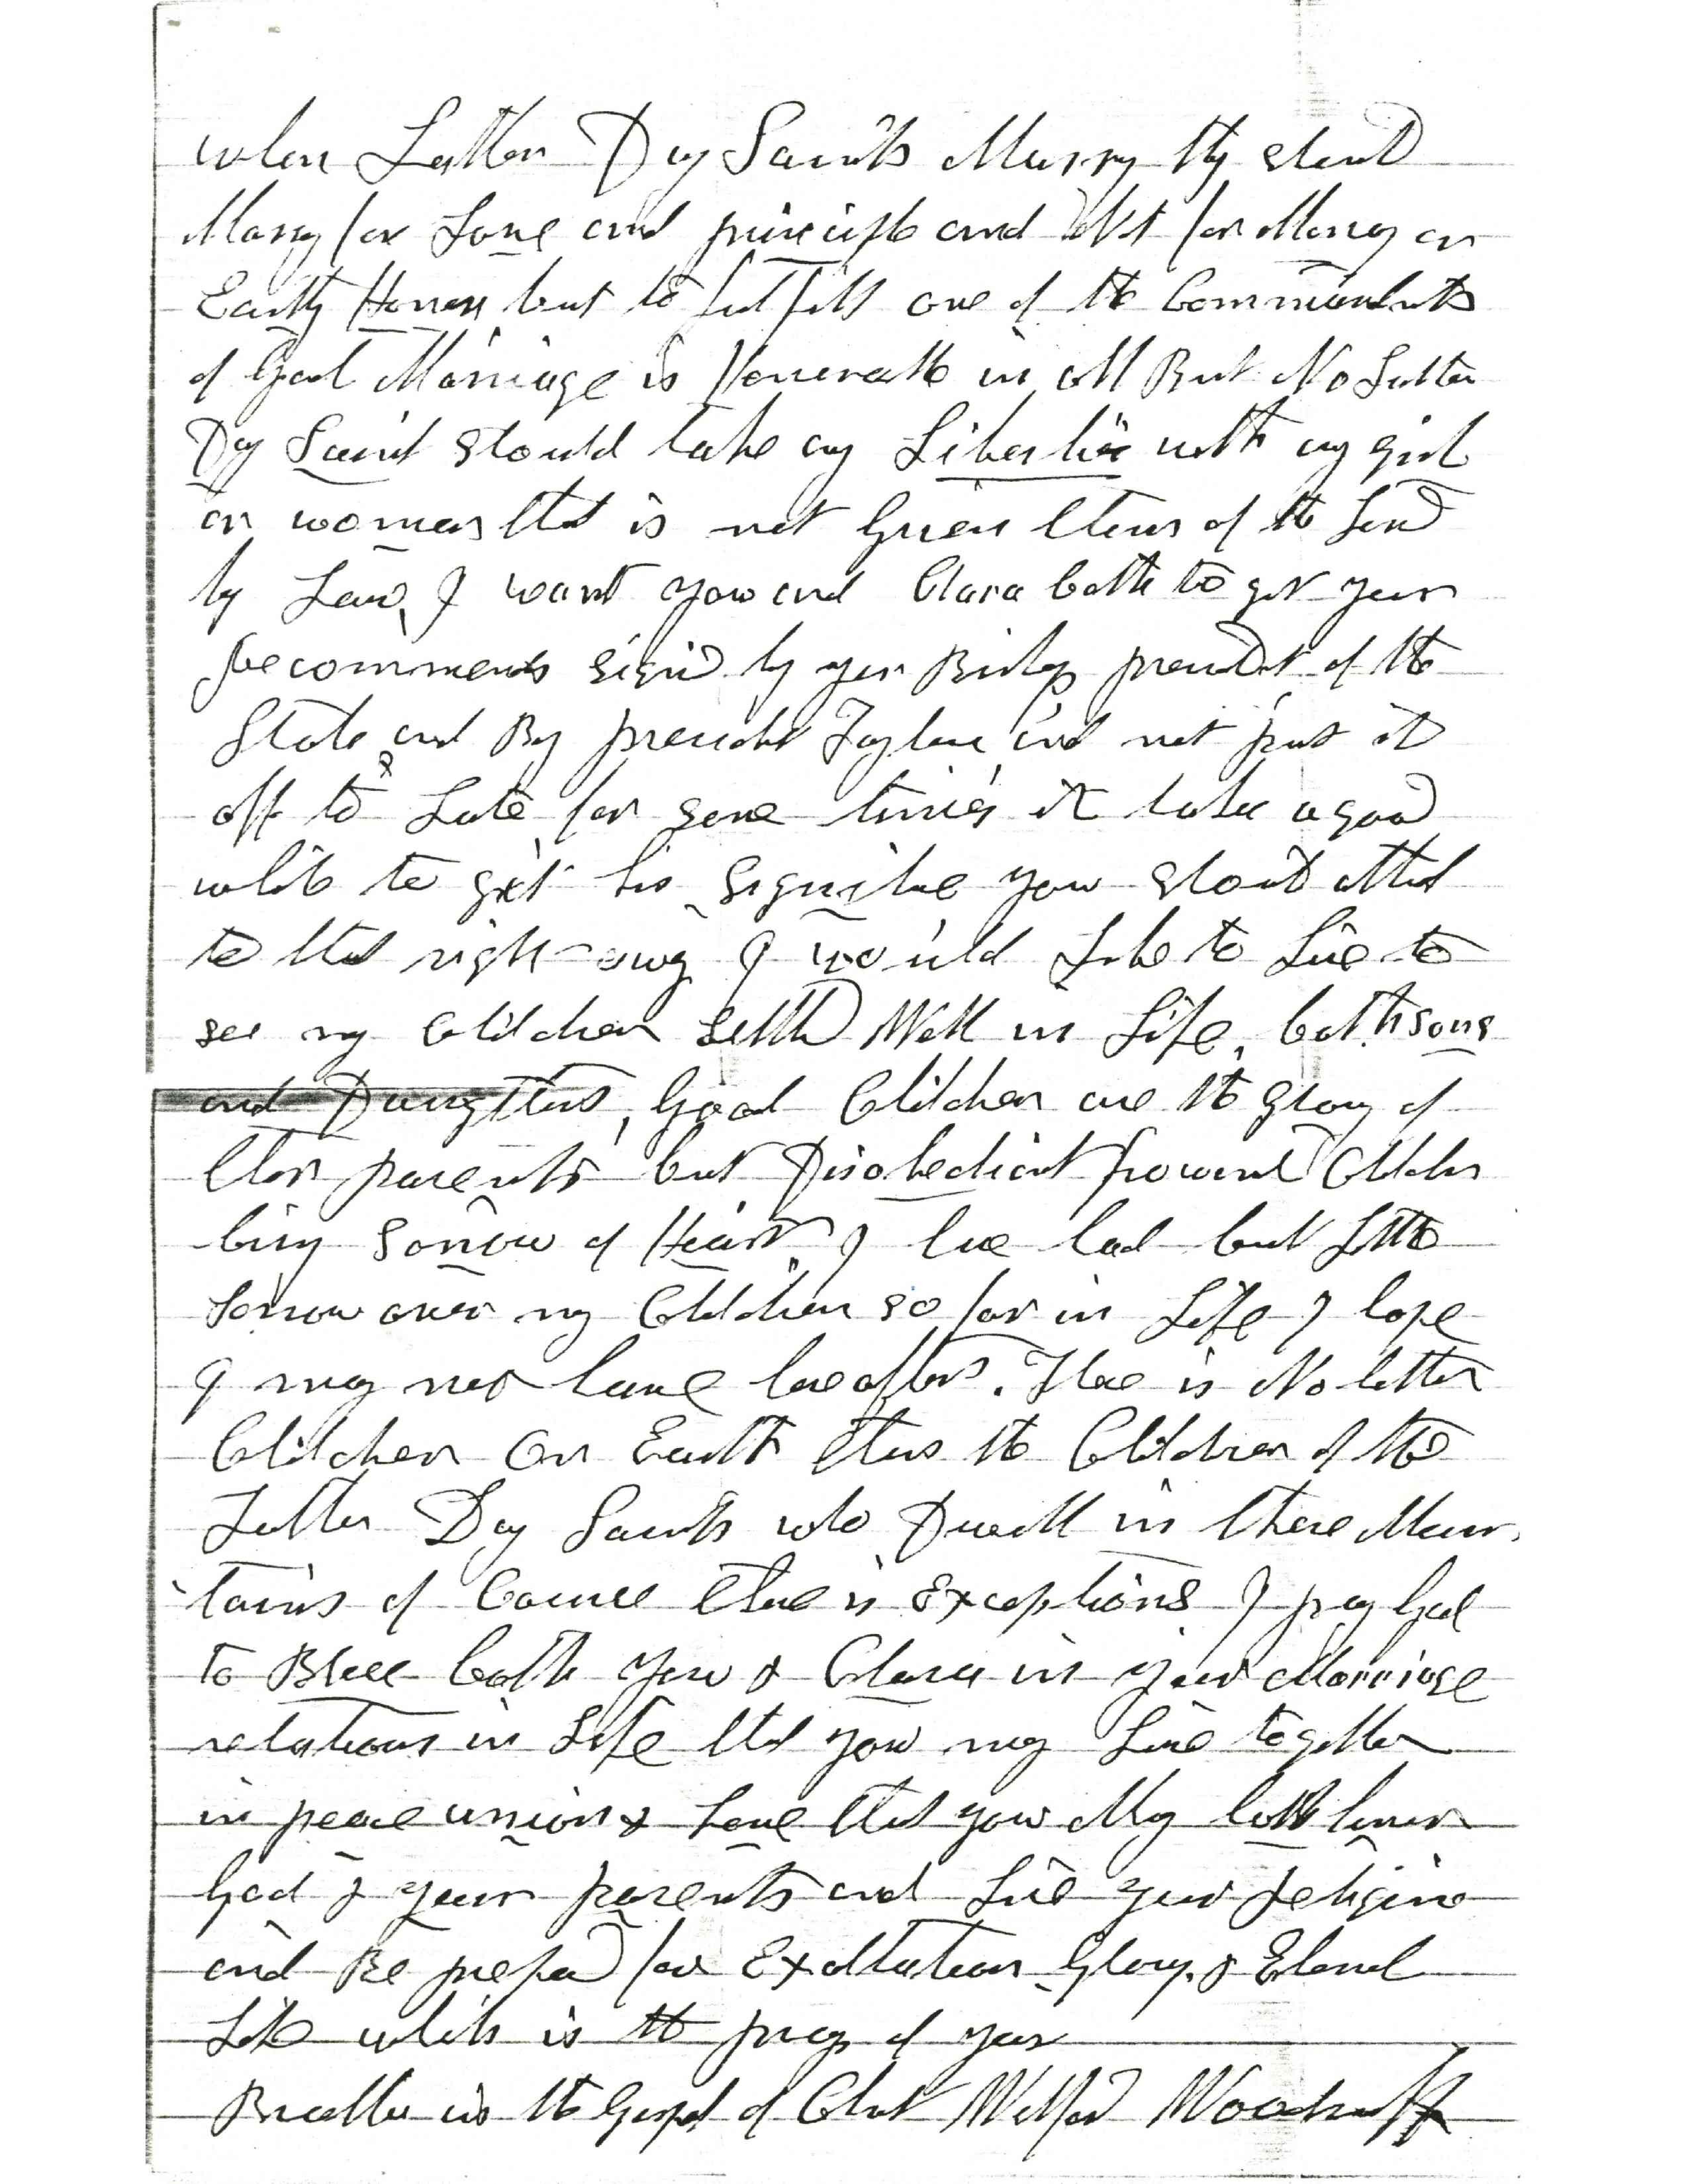 when Latter Day Saints Marry they should
Marry for Love and principle and Not for Money or
Earthly Honors but to fulfill one of the Commandments
of God Marriage is Honorable in all But No Latter
Day Saint should take any Liberties with any girl
or woman that is not given them of the Lord
by Law, I want you and Clara both to get your
Recommends signed by your Bishop president of the
Stake and By president Taylor and not put it
off to Late for some times it takes a good
while to get his signiture you should attend
to that right away I would Like to Live to
see my Children settled Well in Life, both sons
and Daughters, Good Children are the glory of
their parents but Disobedient froward Children
bring sorrow of Heart. I have had but Little
sorrow over my Children so far in Life I hope
I may not have hereafter. There is No better
Children on Earth than the Children of the
Latter Day Saints who Dwell in these Moun
tains of Course there is Exceptions I pray God
to Bless both you & Clara in your Marriage
relations in Life that you may Live together
in peace union & Love that you May both honor
God & your parents and Live your religion
and Be prepared for Exaltation Glory & Eternal
Life which is the prayer of your
Brother in the Gospel of Christ Wilford Woodruff